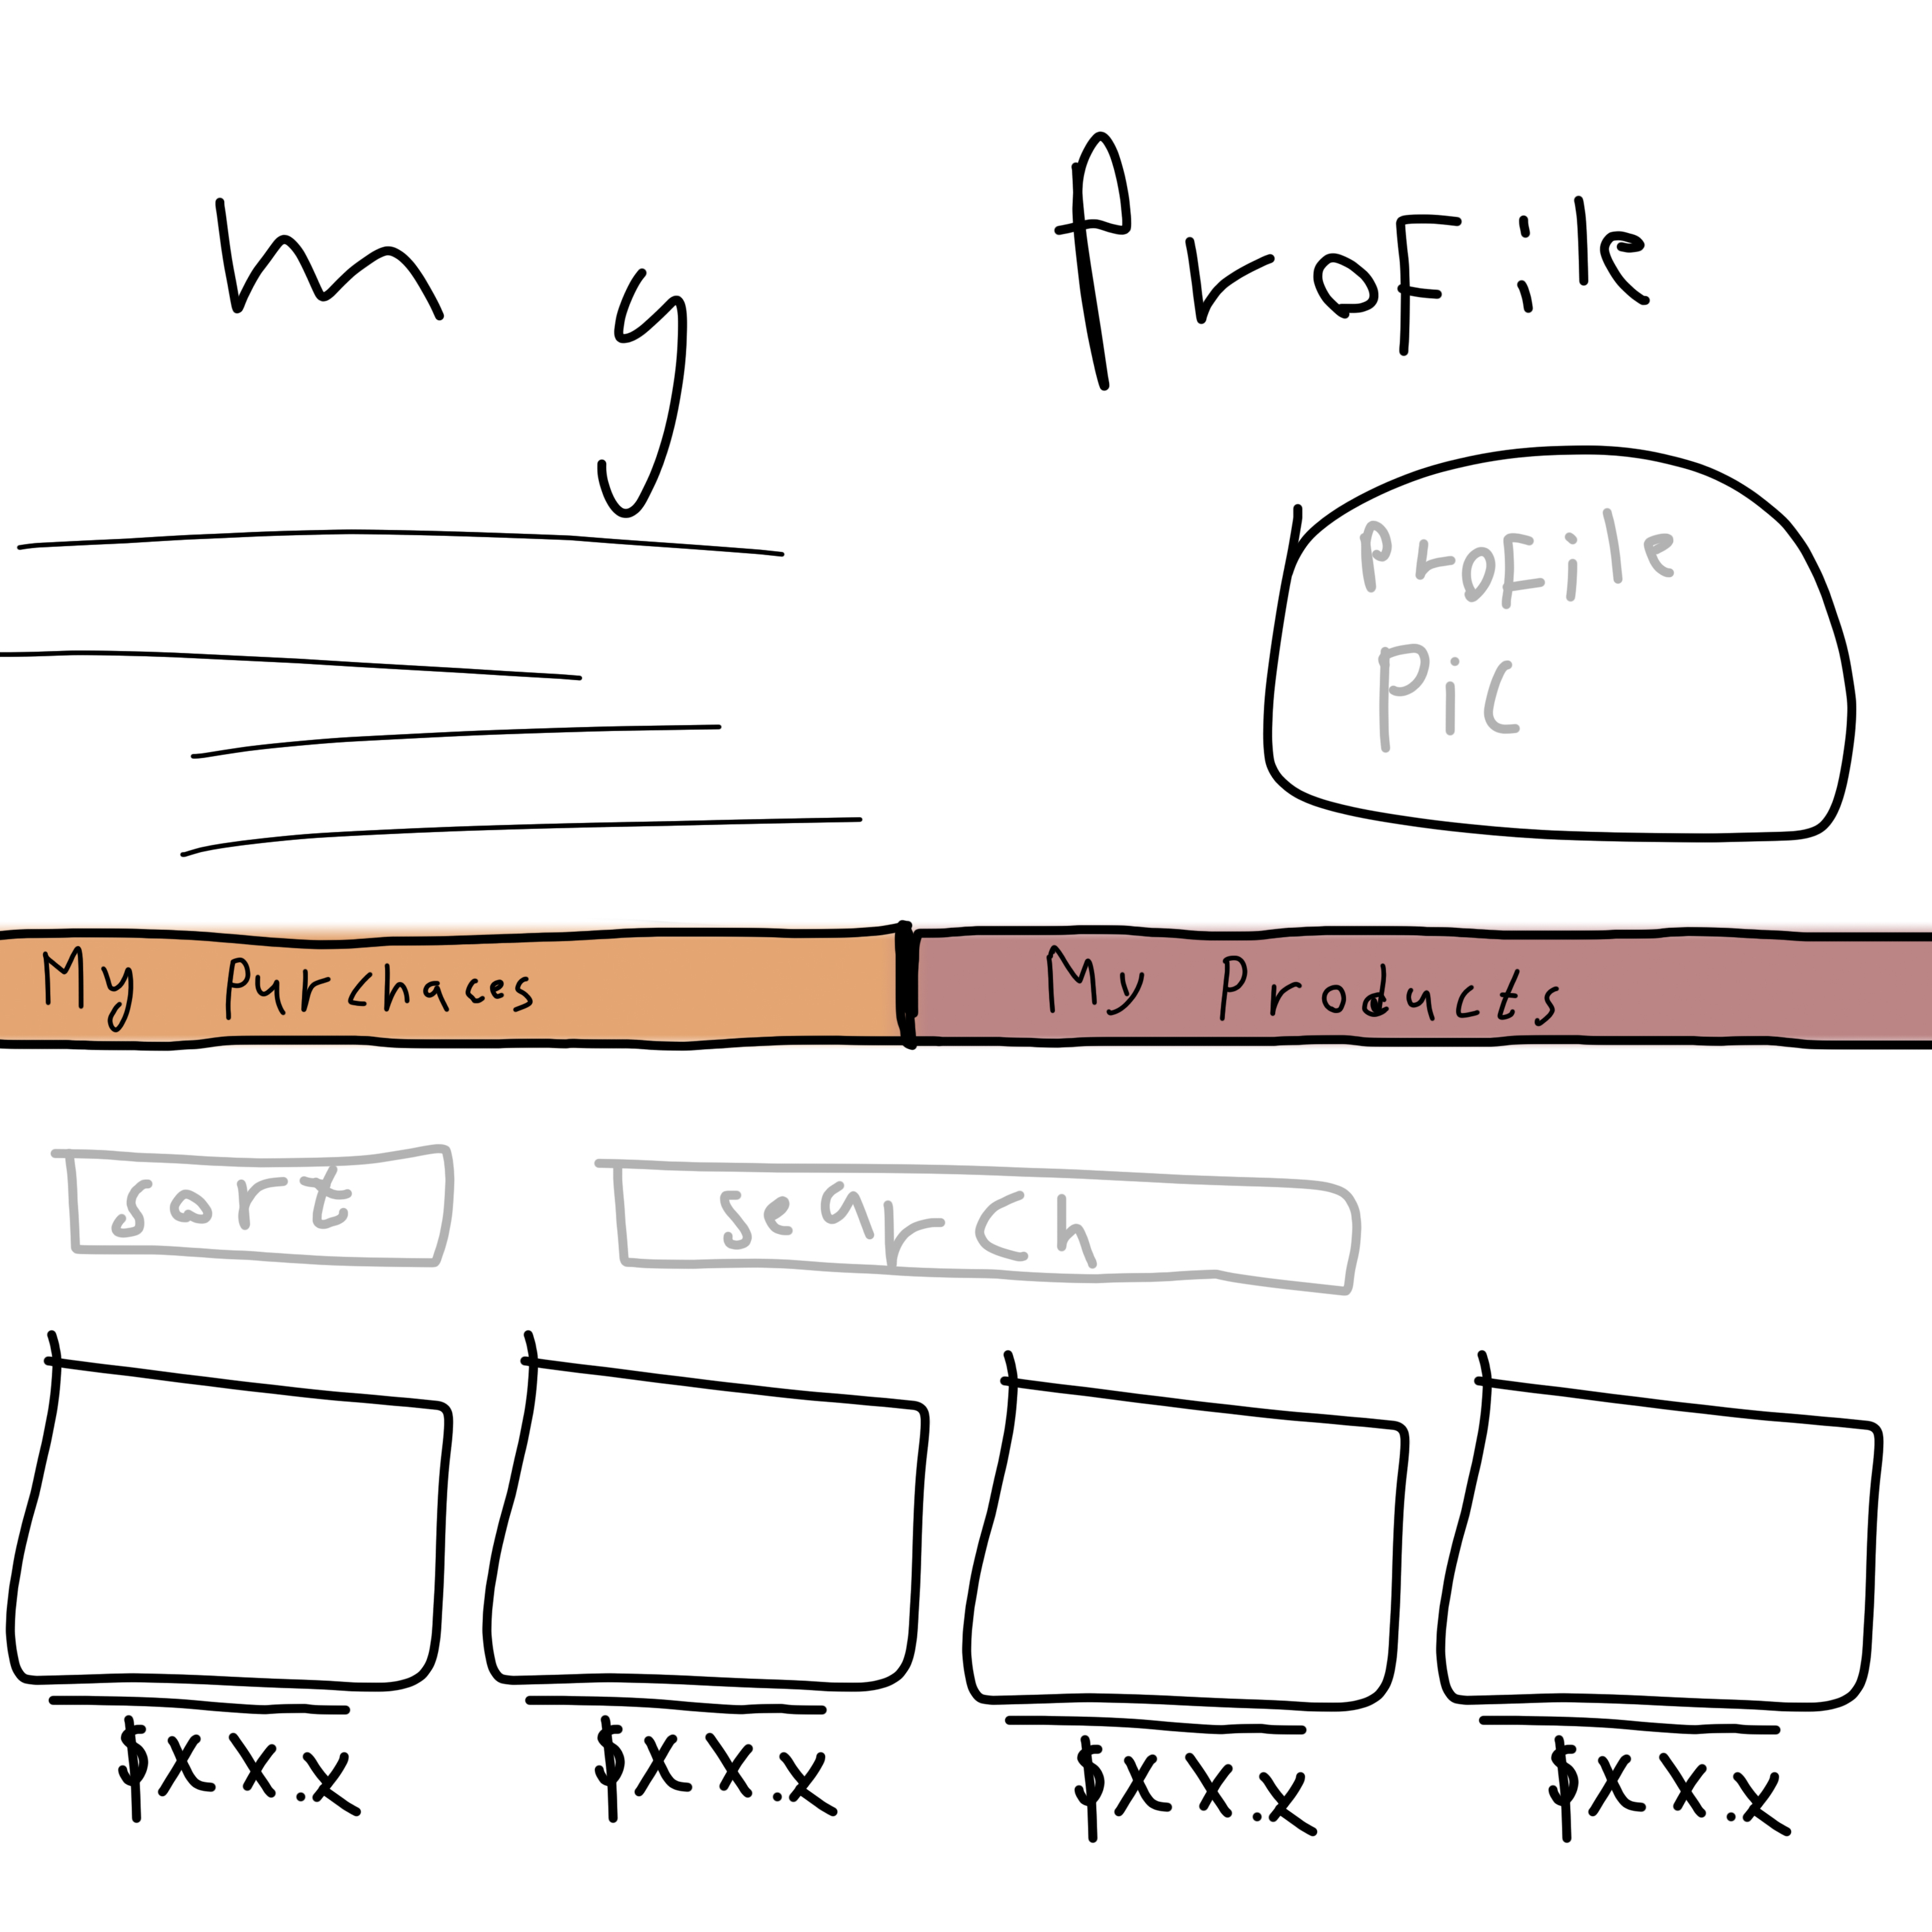 my Profile
Profile
Pic
My Purchaces
My Products
sort
search
$XX.X
$XX.X
$XX.X
$XX.X